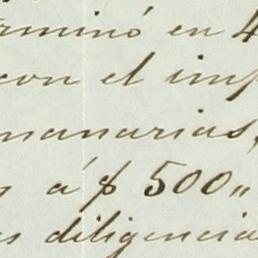 rminó en 4
con el imp
manarias,
s á $ 500,,
es diligencia